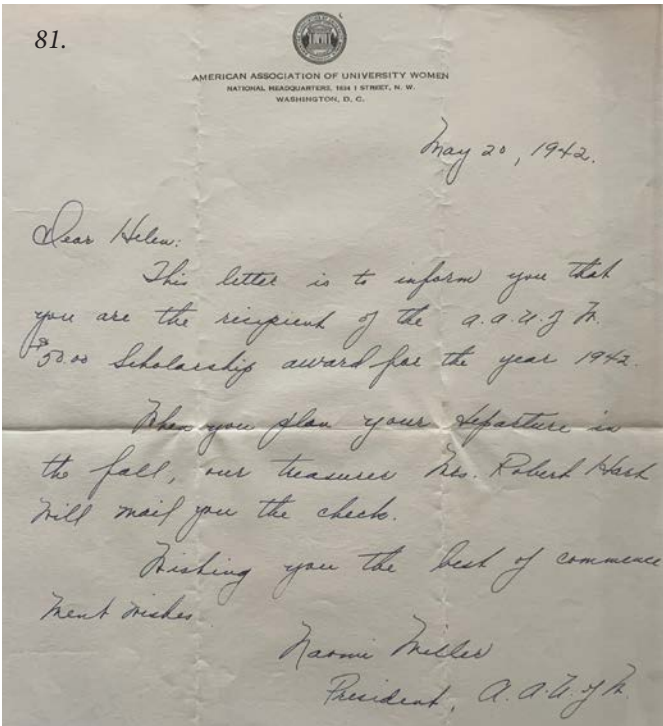 81.
AMERICAN ASSOCIATION OF UNIVERSITY WOMEN
NATIONAL HEADQUARTERS, 1634 I STREET, N. W.
WASHINGTON, D. C.
May 20, 1942.
Dear Helen:
This letter is to inform you that
you are the recipient of the a.a.U.of W.
$50.00 Scholarship award for the year 1942.
When you plan your departure in
the fall, our treasurer Mrs. Robert
will mail you the check.
Wishing you the best of commence
ment wishes
Naomi Miller
President, a.a.U.of W.